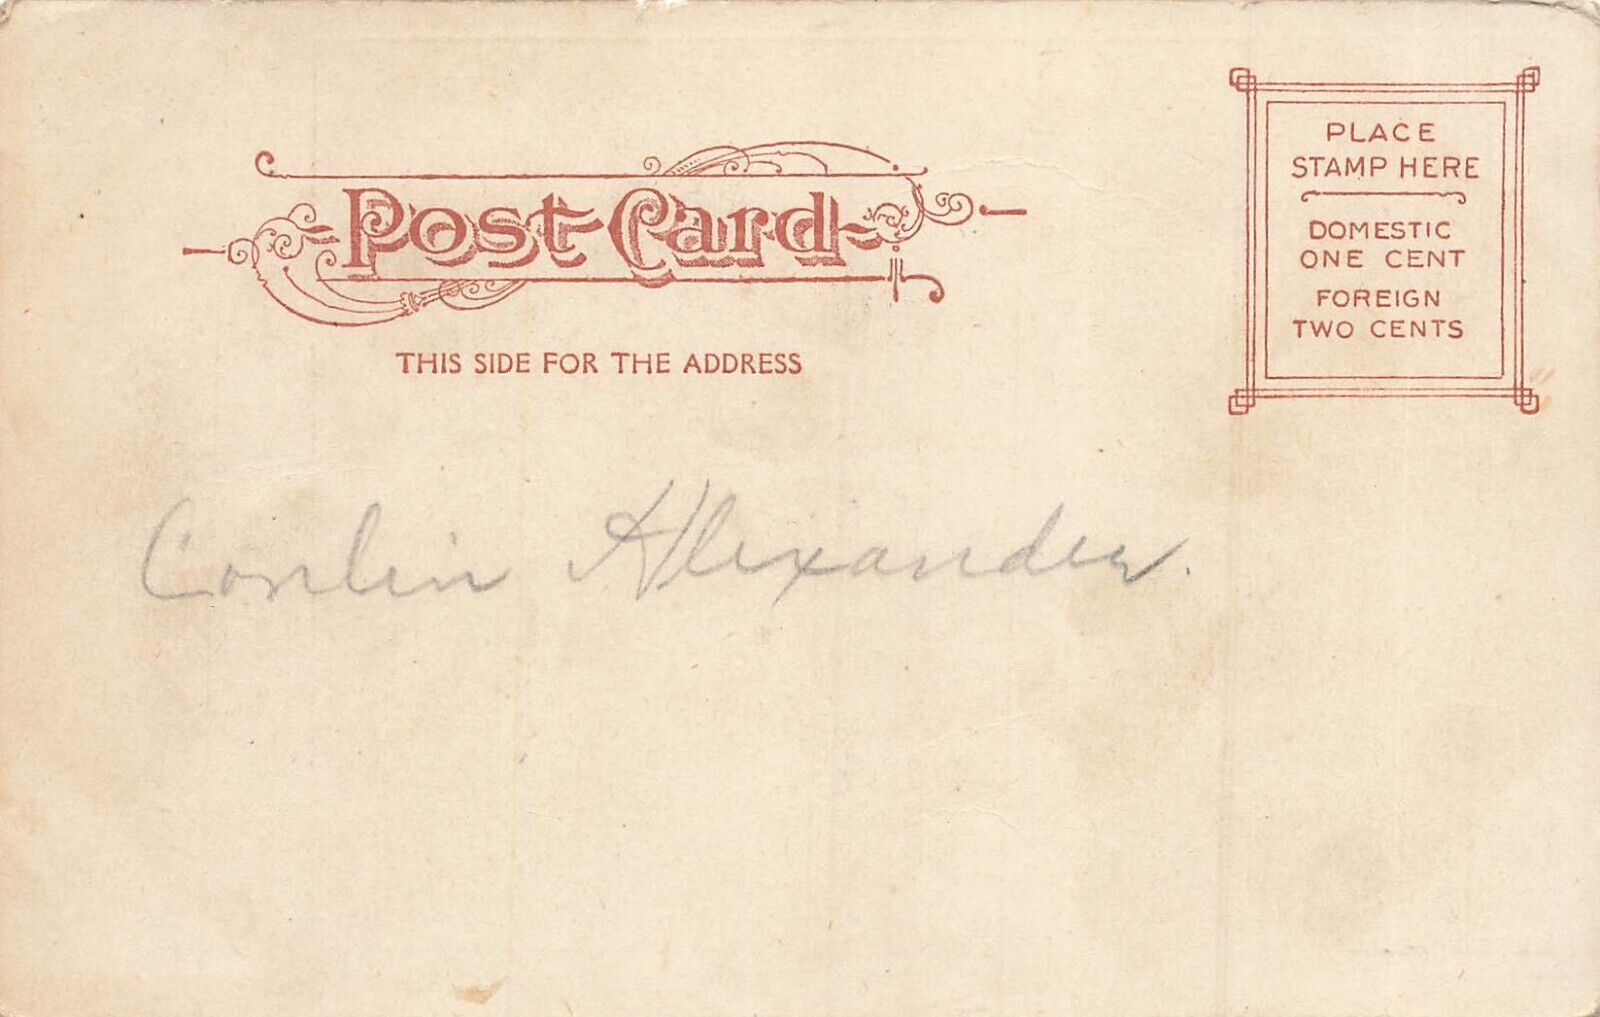 Post Card
THIS SIDE FOR THE ADDRESS
PLACE
STAMP HERE
DOMESTIC
ONE CENT
FOREIGN
TWO CENTS
Conlin Alexander.